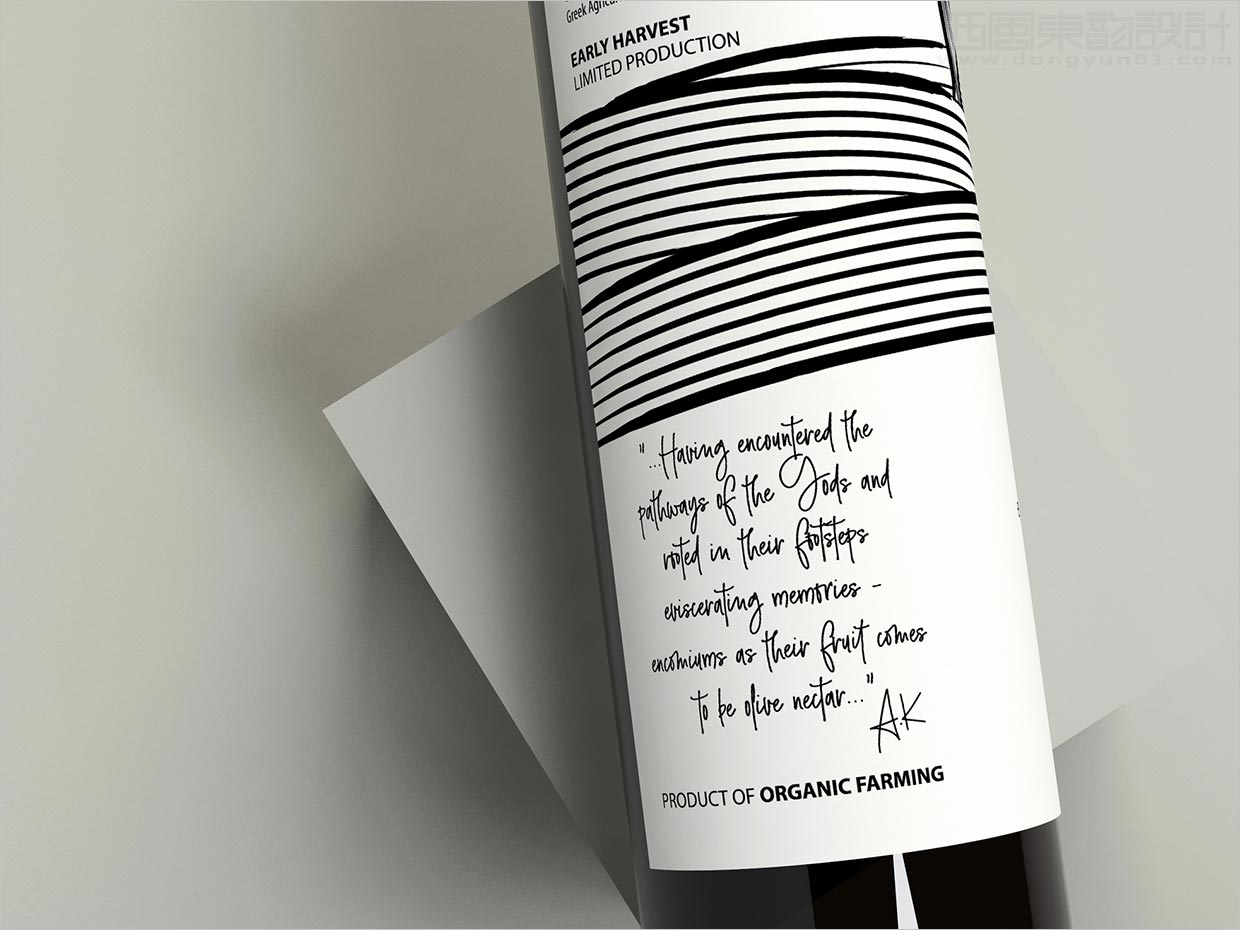 西風東韵設計
www.dongyun01.com
Greek
EARLY HARVEST
LIMITED PRODUCTION
"...Having encountered the
pathways of the Gods and
rooted in their footsteps
eviscerating memories -
encomiums as their fruit comes
to be olive nectar..."
A.K
PRODUCT OF ORGANIC FARMING